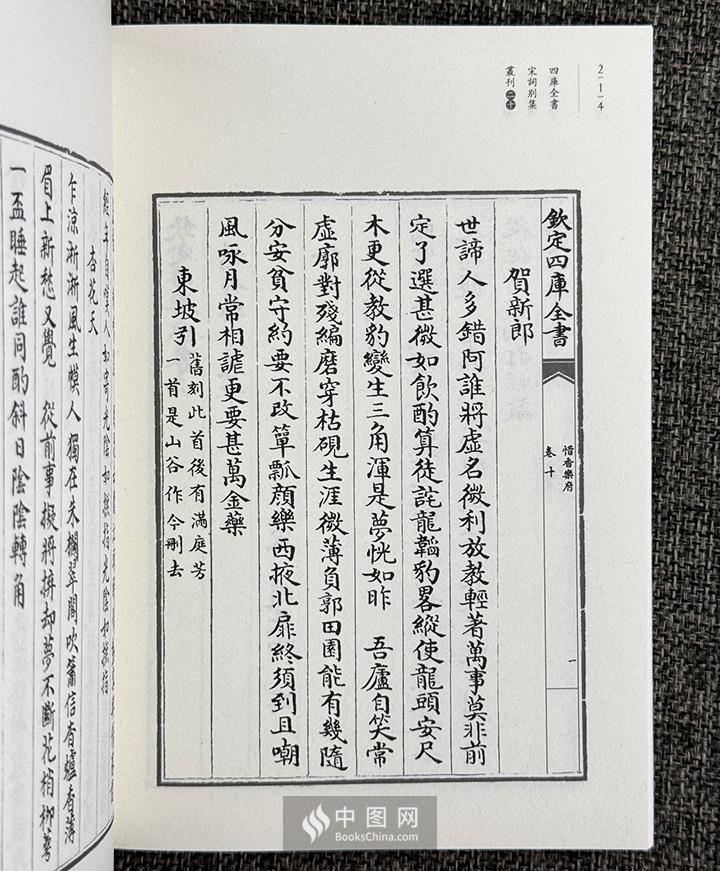 2-1-4
四庫全書
宋詞別集
叢刊二十
欽定四庫全書
惜香樂府
卷十
一
賀新郎
世諦人多錯阿誰將虛名微利放教輕著萬事莫非前
定了選甚微如飲酌算徒詫龍韜豹畧縱使龍頭安尺
木更從教豹變生三角渾是夢恍如昨 吾廬自笑常
虛廓對殘編磨穿枯硯生涯微薄負郭田園能有幾隨
分安貧守約要不改簞瓢顏樂西掖北扉終須到且嘲
風咏月常相謔更要甚萬金藥
東坡引 舊刻此首後有滿庭芳
一首是山谷作今刪去
人如寄光陰如撚指光陰如撚指
杏花天
乍涼淅淅風生幙人獨在朱欄翠閣吹簫信杳爐香薄
眉上新愁又覺 從前事擬將拚却夢不斷花梢柳萼
一盃睡起誰同酌斜日陰陰轉角
中图网
BooksChina.com